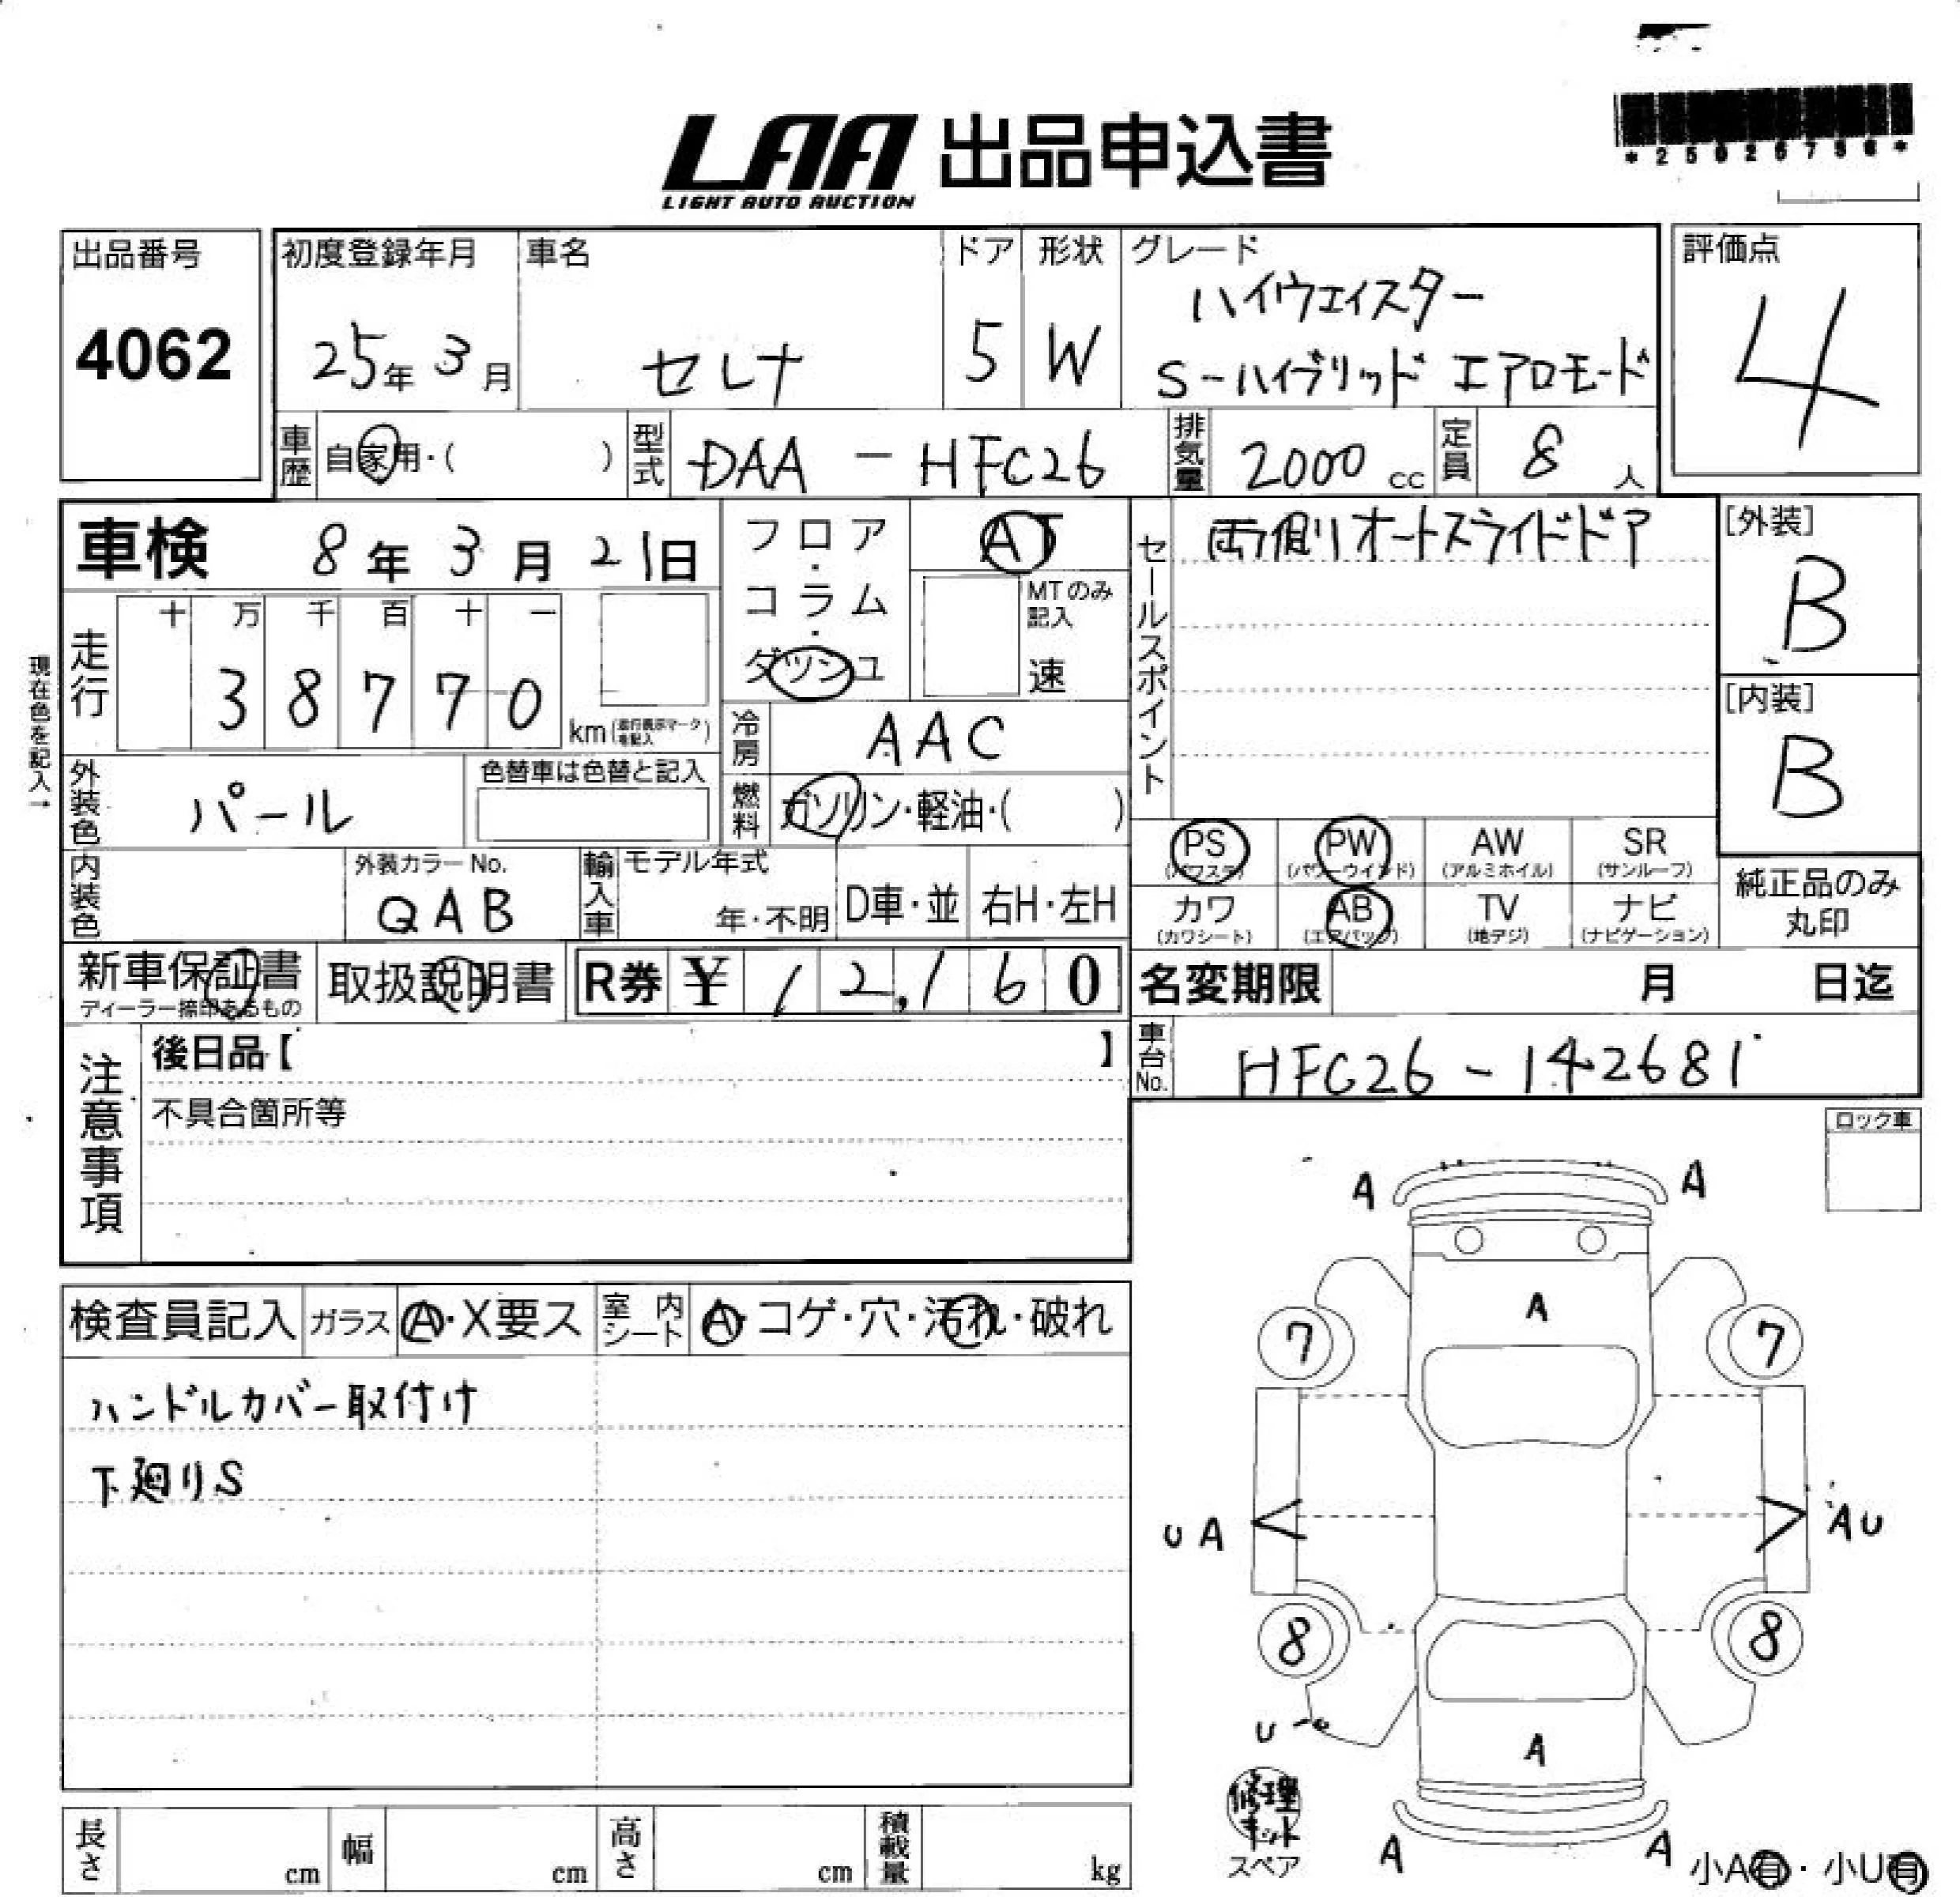 LAA 出品申込書
LIGHT AUTO AUCTION
出品番号
4062
初度登録年月
25年 3月
車名
セレナ
ドア
5
形状
W
グレード
ハイウェイスター
S-ハイブリッド エアロモード
評価点
4
車歴
自家用・( )
型式
DAA - HFC26
排気量
2000 cc
定員
8 人
車検 8年 3月 21日
フロア・コラム・ダッシュ
AT
MTのみ記入
速
セールスポイント
両側りオートスライドドア
[外装]
B
[内装]
B
現在色を記入→
走行
十 万 千 百 十 一
3 8 7 7 0
km(走行表示マークを記入)
冷房
AAC
外装色
パール
色替車は色替と記入
燃料
ガソリン・軽油・( )
内装色
外装カラーNo.
QAB
輸入車
モデル年式
年・不明
D車・並
右H・左H
PS (パワステ)
PW (パワーウインド)
AW (アルミホイル)
SR (サンルーフ)
カワ (カワシート)
AB (エアバッグ)
TV (地デジ)
ナビ (ナビゲーション)
純正品のみ
丸印
新車保証書
ディーラー捺印あるもの
取扱説明書
R券 ¥ 12,160
名変期限 月 日迄
車台No.
HFC26-142681
注意事項
後日品【 】
不具合箇所等
ロック車
検査員記入
ガラス
A・X要ス
室内シート
A・コゲ・穴・汚れ・破れ
ハンドルカバー取付け
下廻りS
A A
A
7 7
U A A U
8 8
U
A
A A
修理
キット
スペア
小A有・小U有
長さ cm
幅 cm
高さ cm
積載量 kg